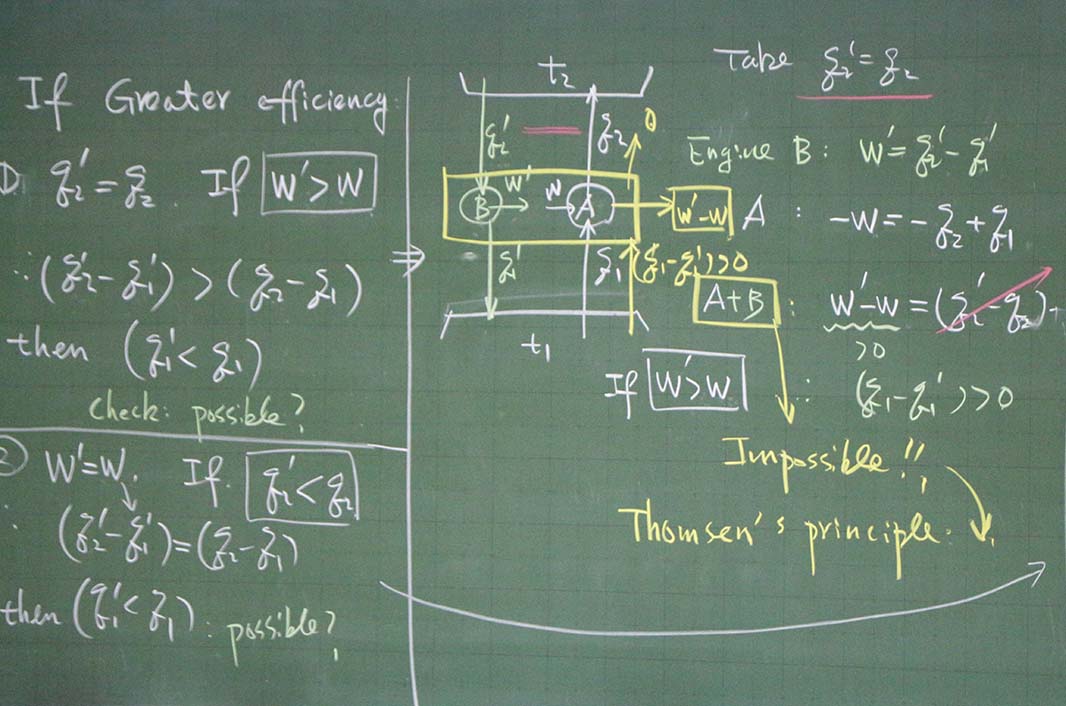 If Greater efficiency:
① q₂' = q₂ . If W' > W
∴ (q₂' - q₁') > (q₂ - q₁)
then (q₁' < q₁)
check: possible?
② W' = W. If q₂' < q₂
∴ (q₂' - q₁') = (q₂ - q₁)
then (q₁' < q₁) : possible?
t₂
q₂' q₂ 0
B W' W A W'-W
q₁' q₁ (q₁ - q₁') > 0
t₁
Take q₂' = q₂
Engine B : W' = q₂' - q₁'
A : -W = -q₂ + q₁
A+B : W' - W = (q₂' - q₂) +
>0
If W' > W ∴ (q₁ - q₁') > 0
Impossible!!
Thomsen's principle.